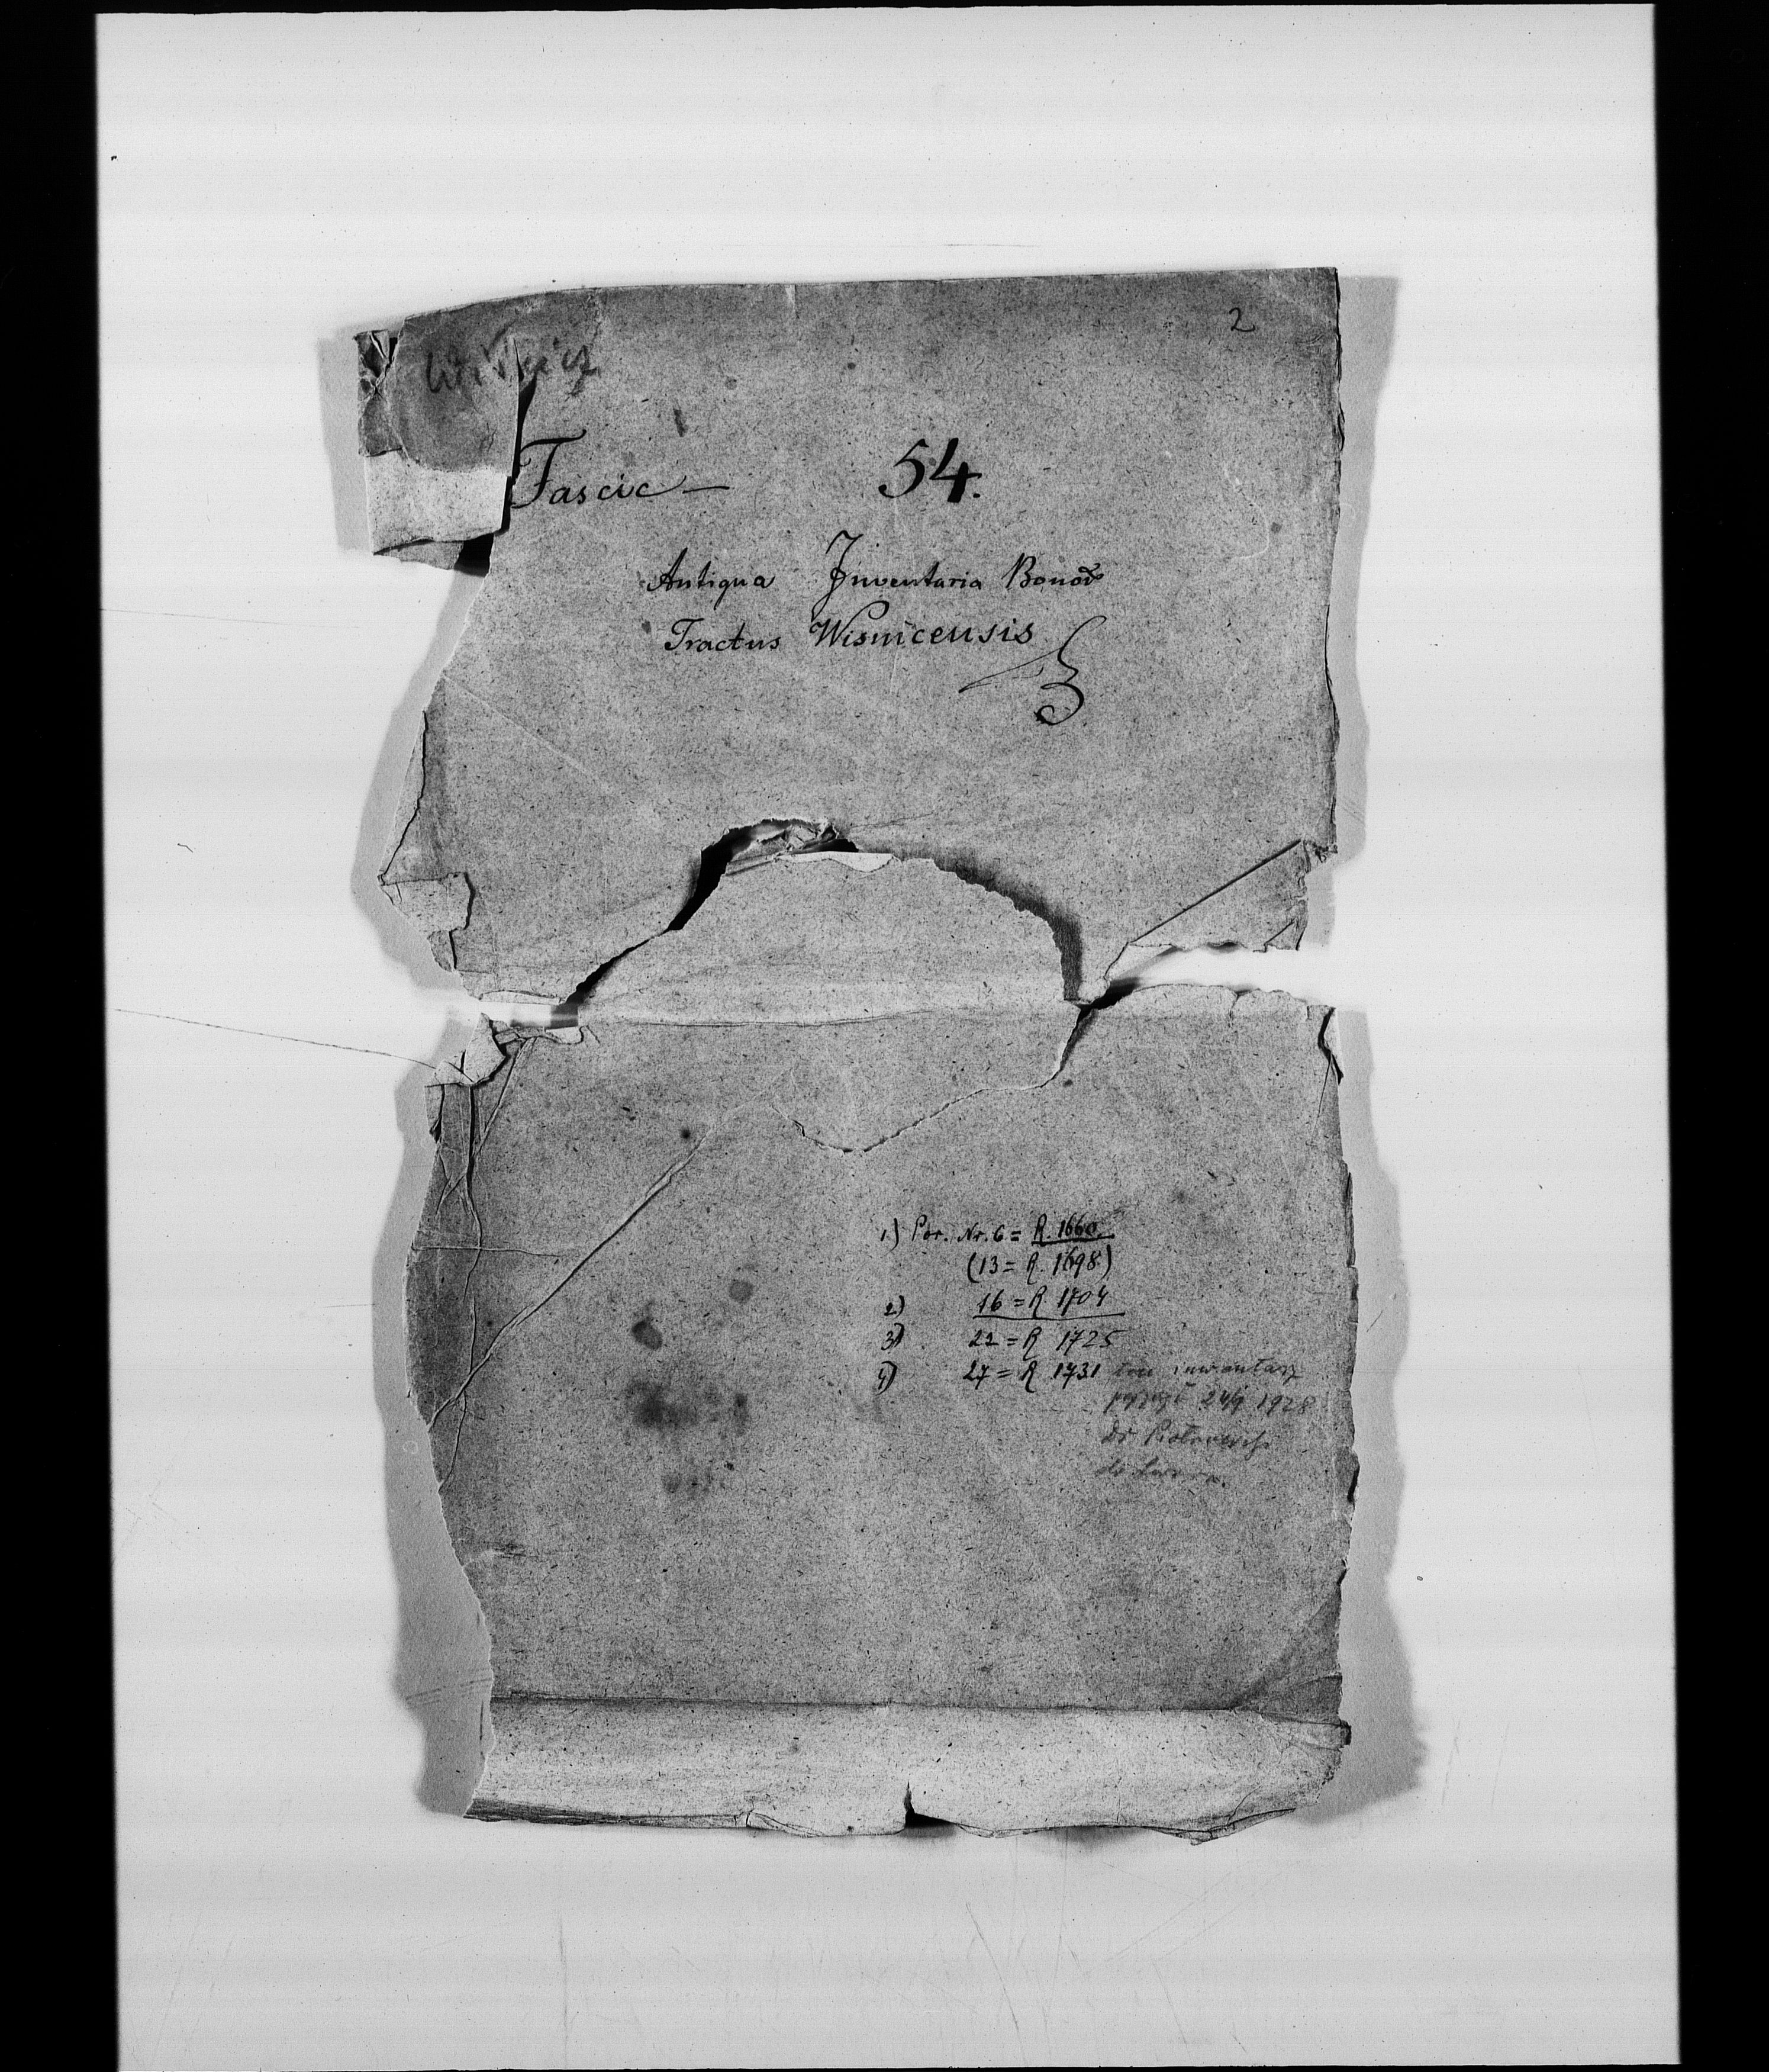 2
Wiśnicz
Fascic — 54.
Antiqua Inventaria Bonor
Tractus Wisnicensis
1.) Por. Nr. 6 = R. 1660.
(13 = R. 1698)
2) 16 = R. 1704
3) 22 = R 1725
4) 27 = R 1731 ten inwentarz
1928
Dr
do